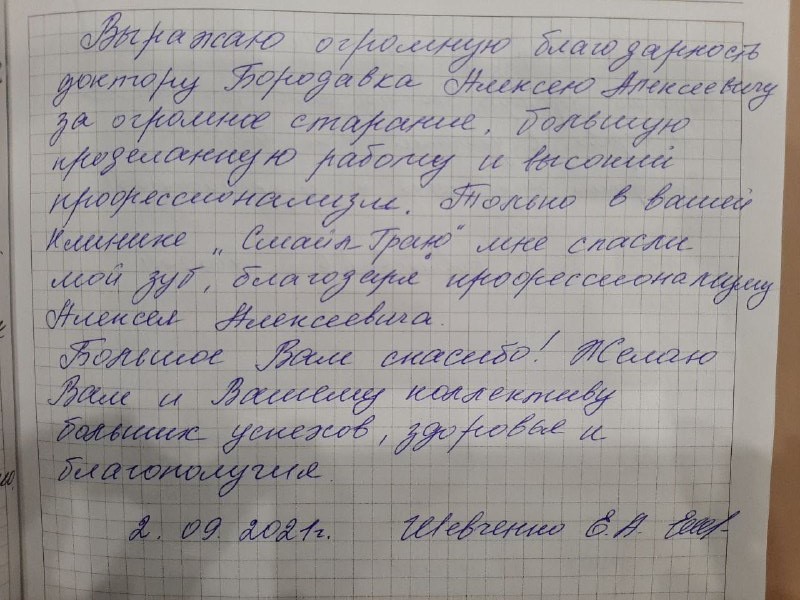 Выражаю огромную благодарность
доктору Бородавка Алексею Алексеевичу
за огромное старание, большую
проделанную работу и высокий
профессионализм. Только в вашей
клинике „Смайл-Граю" мне спасли
мой зуб, благодаря профессионализму
Алексея Алексеевича.
Большое Вам спасибо! Желаю
Вам и Вашему коллективу
больших успехов, здоровья и
благополучия.
2. 09. 2021г. Шевченко Е.А.